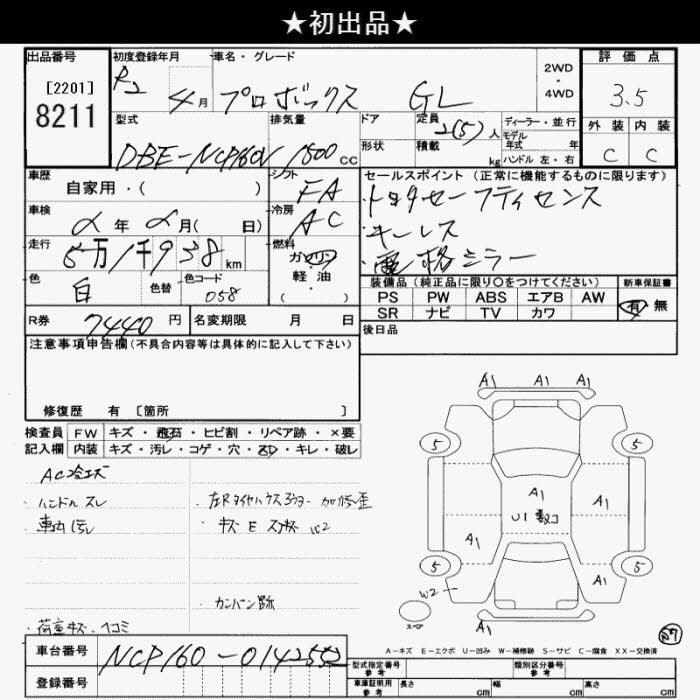 ★初出品★
出品番号 初度登録年月 車名・グレード
[2201]
8211
R2 4月 プロボックス GL
2WD
・
4WD
評価点
3.5
外装 内装
C C
型式 排気量 ドア 定員 ディーラー・並行
DBE-NCP160V 1500cc 2(5)人
モデル年式 年
形状 積載 kg ハンドル 左・右
車歴 シフト
自家用・( ) FA
セールスポイント (正常に機能するものに限ります)
トヨタセーフティセンス
キーレス
電格ミラー
車検 年 月( 日) 冷房
AC
走行 燃料
5万1千938km ガソリン
軽油
( )
色 色替 色コード
白 058
装備品 (純正品に限り○をつけてください) 新車保証書
PS PW ABS エアB AW 有・無
SR ナビ TV カワ
R券 7440円 名変期限 月 日
後日品
注意事項申告欄(不具合内容等は具体的に記入して下さい)
修復歴 有 [箇所 ]
検査員 FW キズ・飛石・ヒビ割・リペア跡・×要
記入欄 内装 キズ・汚レ・コゲ・穴・・キレ・破レ
・ハンドルスレ
・車内汚レ
・キズ E W2
・カンバン跡
・荷室キズ、ヘコミ
A1 A1 A1
5 5
A1 A1
U1
A1
5 5
W2 A1
A1
スペア
A-キズ E-エクボ U-凹み W-補修跡 S-サビ C-腐食 XX-交換済
車台番号 NCP160-0142552
登録番号
型式指定番号 参考 類別区分番号 参考
車庫証明用 参考 長さ cm 幅 cm 高さ cm